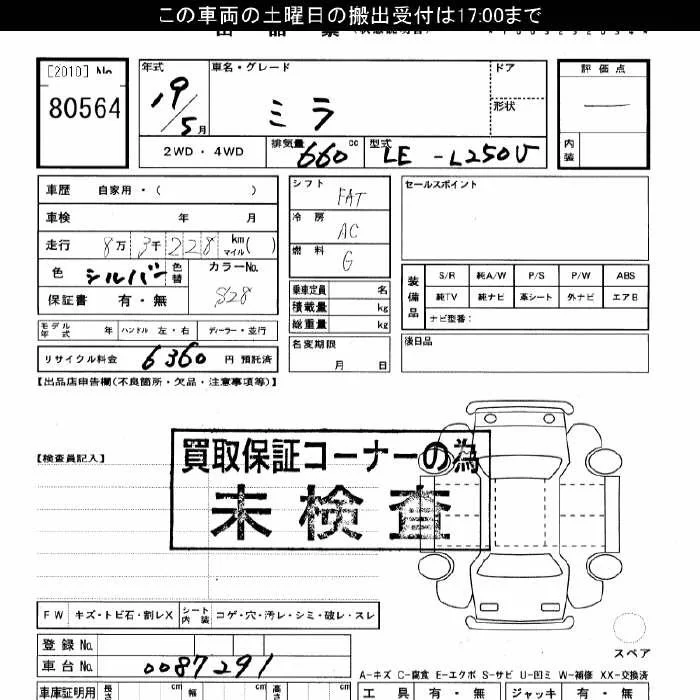 この車両の土曜日の搬出受付は17:00まで
[2010] No
80564
年式
19/5月
車名・グレード
ミラ
ドア
形状
評価点
内装
2WD・4WD
排気量
660 cc
型式
LE-L250V
車歴 自家用・( )
車検 年 月
走行 8万3千228 km マイル( )
色 シルバー 色替 カラーNo. S28
保証書 有・無
シフト FAT
冷房 AC
燃料 G
乗車定員 名
積載量 kg
総重量 kg
名変期限 月 日
セールスポイント
装備品
S/R 純A/W P/S P/W ABS
純TV 純ナビ 革シート 外ナビ エアB
ナビ型番:
後日品
モデル年式 年 ハンドル 左・右 ディーラー・並行
リサイクル料金 6360 円 預託済
【出品店申告欄(不良箇所・欠品・注意事項等)】
【検査員記入】
買取保証コーナーの為
未検査
FW キズ・トビ石・割レX シート内装 コゲ・穴・汚レ・シミ・破レ・スレ
登録No.
車台No. 0087291
スペア
A-キズ C-腐食 E-エクボ S-サビ U-凹ミ W-補修 XX-交換済
車庫証明用 長さ cm 幅 cm 高さ cm
工具 有・無 ジャッキ 有・無